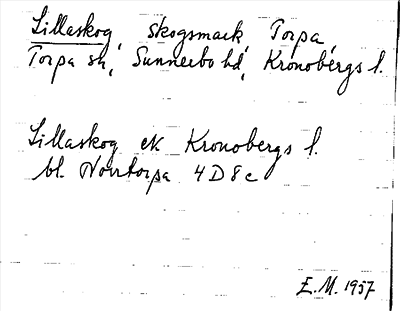 Lillaskog, skogsmark, Torpa,
Torpa sn, Sunnerbo hd, Kronobergs l.
Lillaskog ek Kronobergs l.
bl. Norrtorpa 4 D 8 c
E.M. 1957